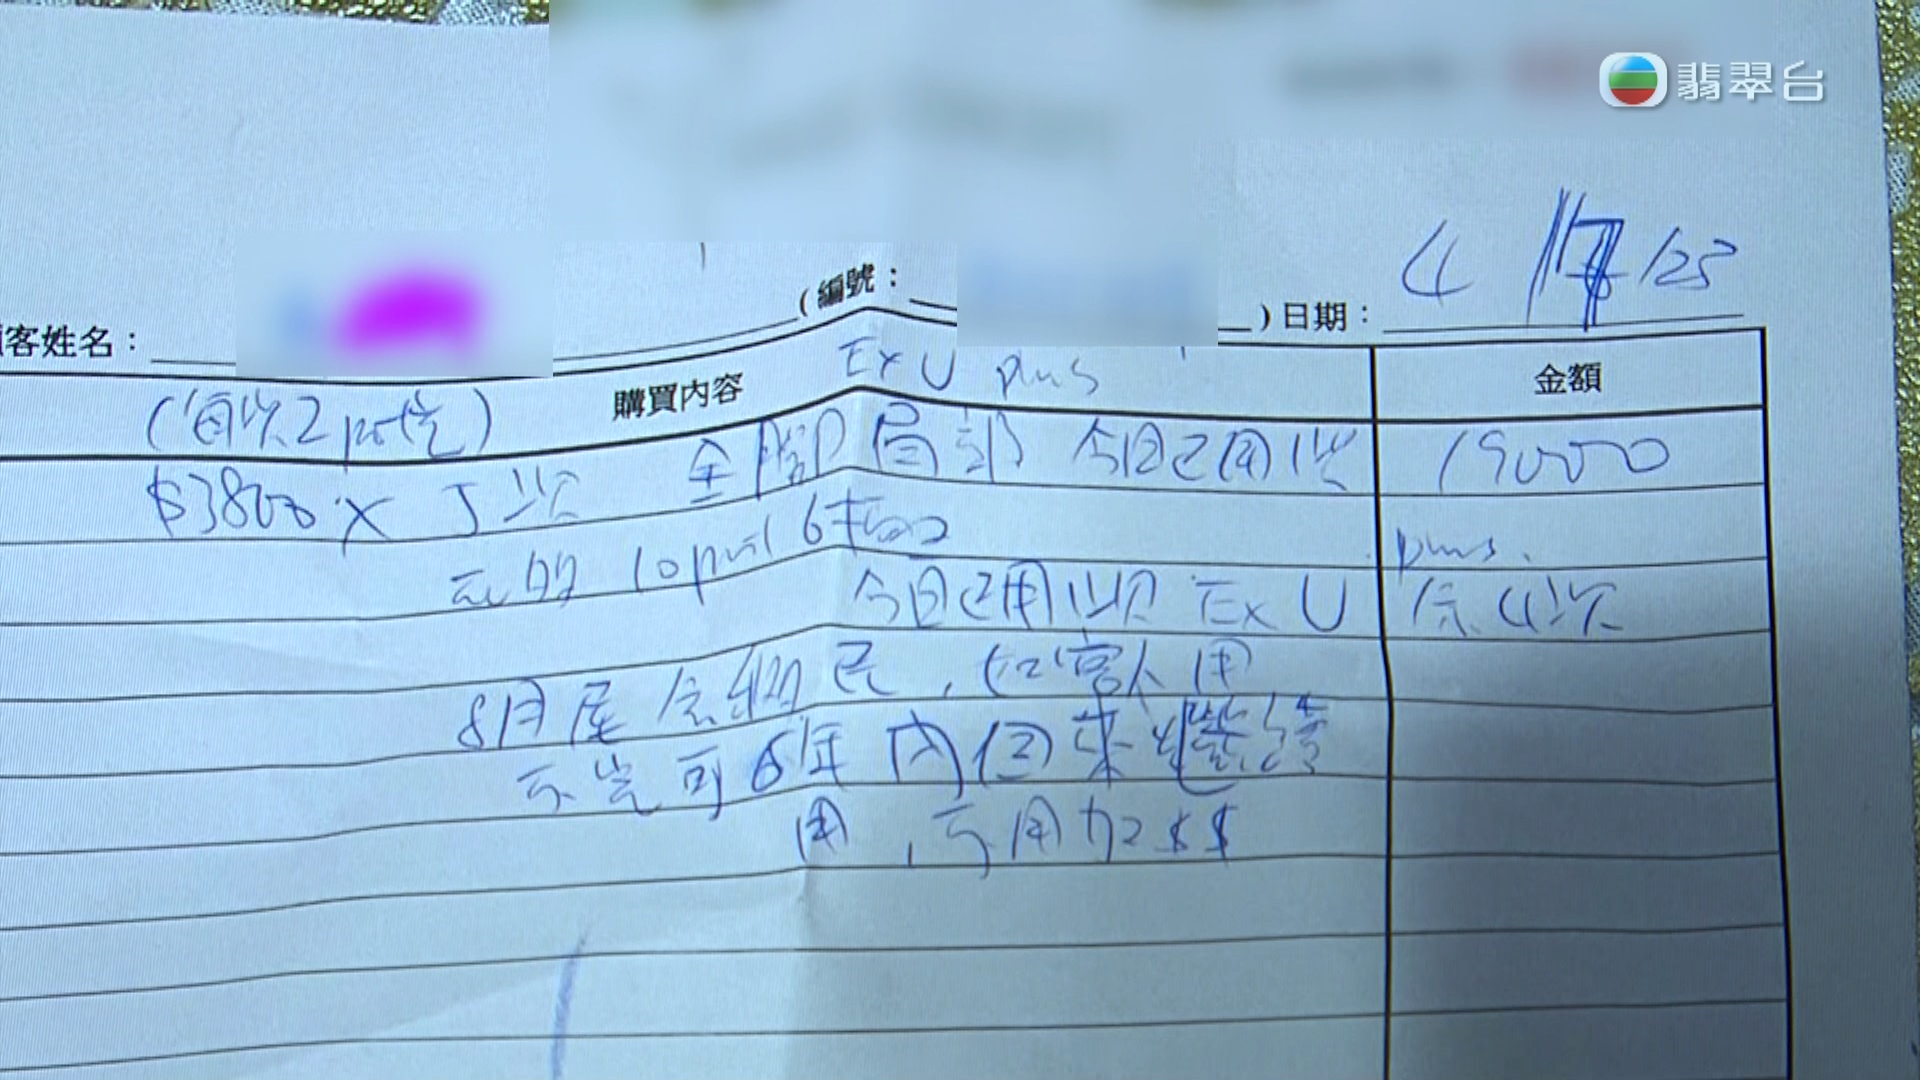 翡翠台
4 /7/25
客姓名： (編號： ) 日期：
購買內容 Ex U plus 金額
(每次2 part 光)
$3800 x 5次 全腳局部 今日已用1次 19000
元的 10 part 6
plus.
今日已用1次 Ex U 余4次
8月底 , 如客人用
不完可6年內回來繼續
用，不用加$$